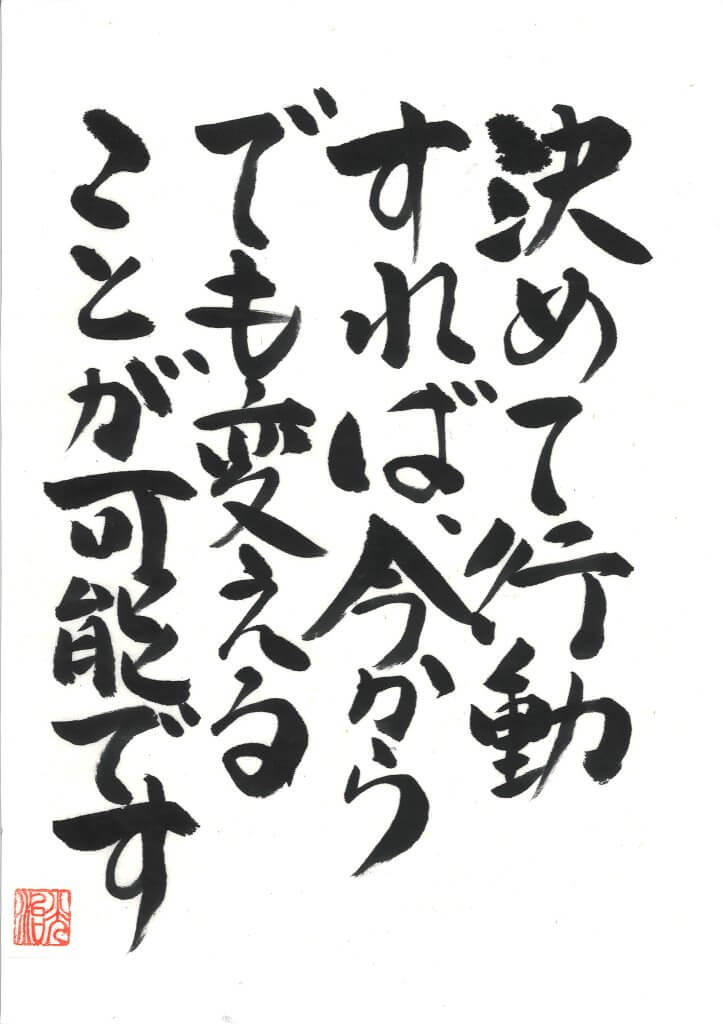 決めて行動
すれば、今から
でも変える
ことが可能です